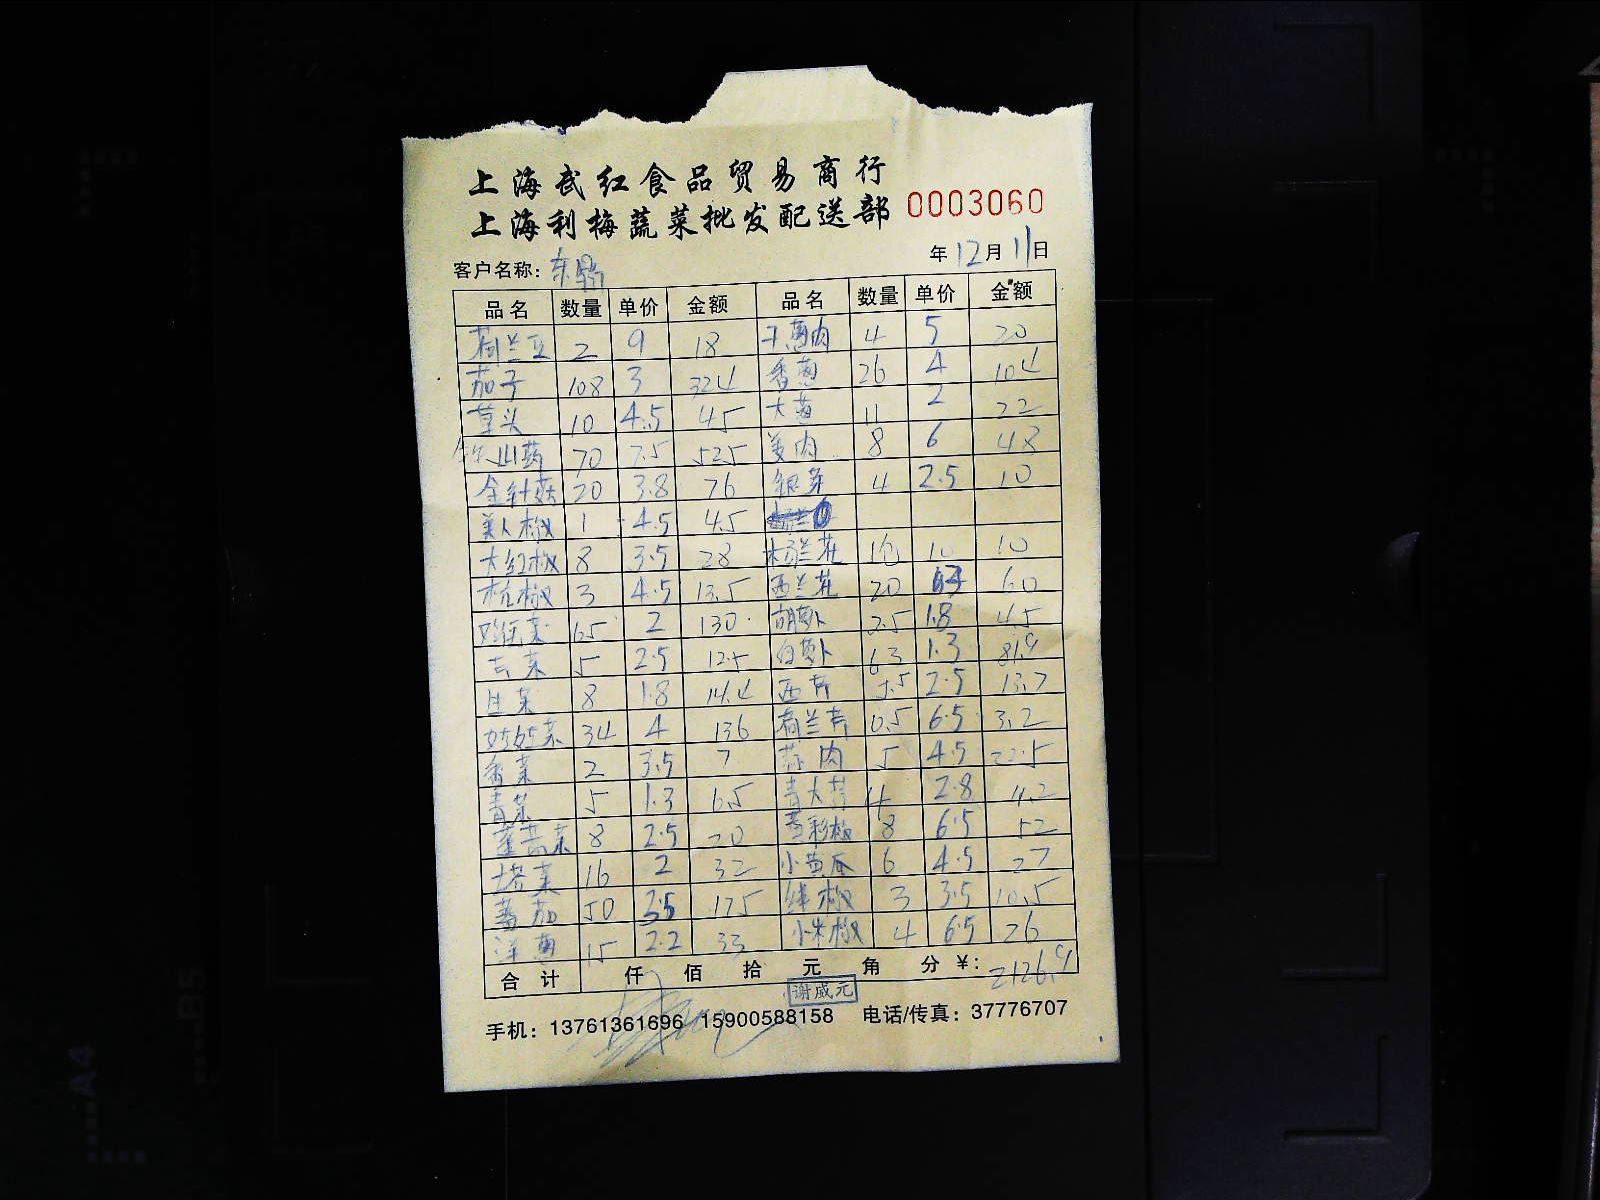 上海武红食品贸易商行
上海利梅蔬菜批发配送部 0003060
年12月11日
客户名称:
品名 数量 单价 金额 品名 数量 单价 金额
荷兰豆 2 9 18 干葱肉 4 5 20
茄子 108 3 324 香葱 26 4 104
草头 10 4.5 45 大葱 11 2 22
山药 70 7.5 525 姜肉 8 6 48
金针菇 20 3.8 76 银芽 4 2.5 10
美人椒 1 4.5 4.5
大红椒 8 3.5 28 10 10
杭椒 3 4.5 13.5 西兰花 20 60
65 2 130 胡萝卜 2.5 1.8 4.5
5 2.5 12.5 白萝卜 63 1.3 81.9
生菜 8 1.8 14.4 西芹 5.5 2.5 13.7
娃娃菜 34 4 136 荷兰芹 0.5 6.5 3.2
香菜 2 3.5 7 蒜肉 5 4.5 22.5
青菜 5 1.3 6.5 2.8
蓬蒿菜 8 2.5 20 黄彩椒 8 6.5 52
塔菜 16 2 32 小黄瓜 6 4.5 27
蕃茄 50 3.5 175 3 3.5 10.5
洋葱 15 2.2 33 小米椒 4 6.5 26
合计 仟 佰 拾 元 角 分 ¥: 2126.9
谢威元
手机: 13761361696 15900588158 电话/传真: 37776707
B5
A4